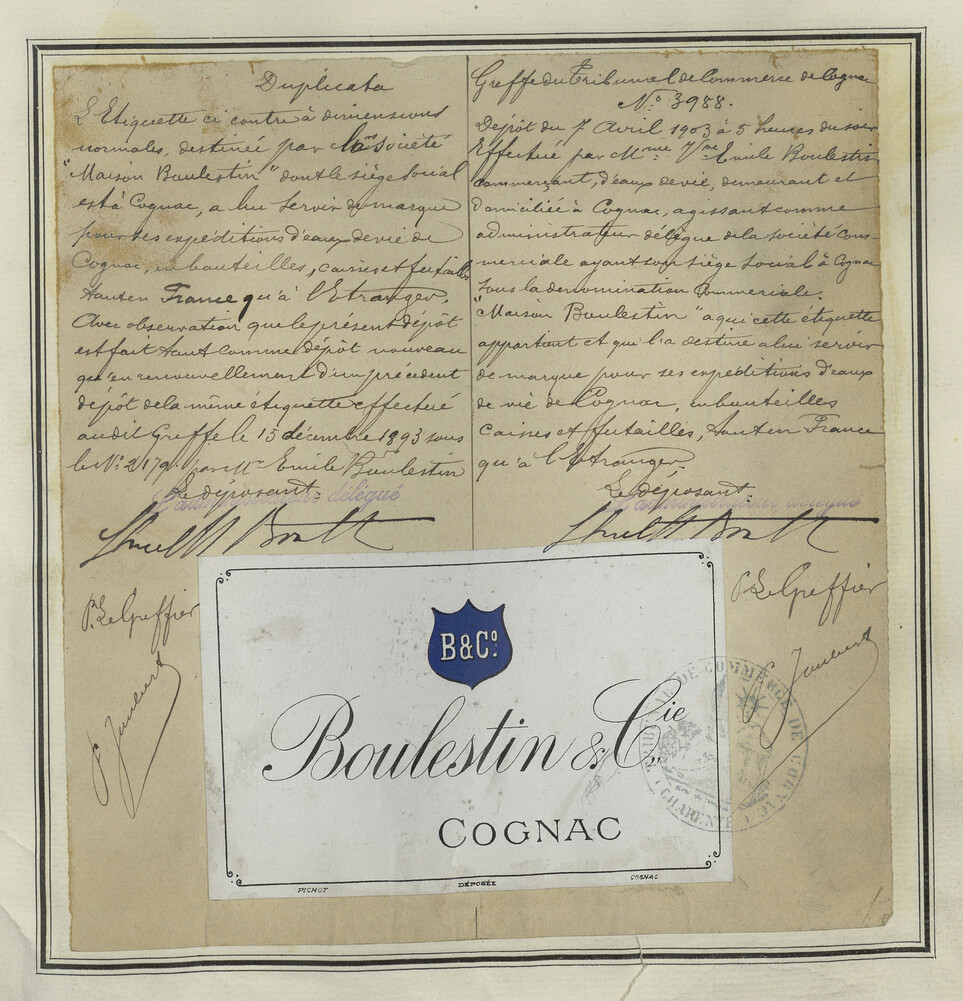 Duplicata
L'Etiquette ci contre à dimensions
normales, destinée par la société
"Maison Boulestin" dont le siège social
est à Cognac, a lui servir de marque
pour ses expéditions d'eaux de vie de
Cognac, en bouteilles, caisses et futailles
tant en France qu'à l'Etranger.
Avec observation que le présent dépôt
est fait tant comme dépôt nouveau
qu'en renouvellement d'un précédent
dépôt de la même étiquette effectué
audit Greffe le 15 décembre 1893 sous
le No. 2179. par Mr Emile Boulestin
Le déposant:
L'administrateur délégué
Pr. Le Greffier
Greffe du Tribunal de Commerce de Cognac
No. 3988.
Dépôt du 7 Avril 1903 à 5 heures du soir
Effectué par Mme Vve Emile Boulestin
commerçant, d'eaux de vie, demeurant et
domiciliée à Cognac, agissant comme
administrateur délégué de la société com-
merciale ayant son siège social à Cognac
sous la denomination Commerciale.
"Maison Boulestin" a qui cette étiquette
appartient et qui l'a destine a lui servir
de marque pour ses expéditions d'eaux
de vie de Cognac, en bouteilles
caisses et futailles, tant en France
qu'à l'Etranger.
Le déposant:
L'administrateur délégué
Pr Le Greffier
B & Co.
Boulestin & Cie.
COGNAC
PICHOT DÉPOSÉE COGNAC
TRIBUNAL DE COMMERCE DE COGNAC
(CHARENTE)